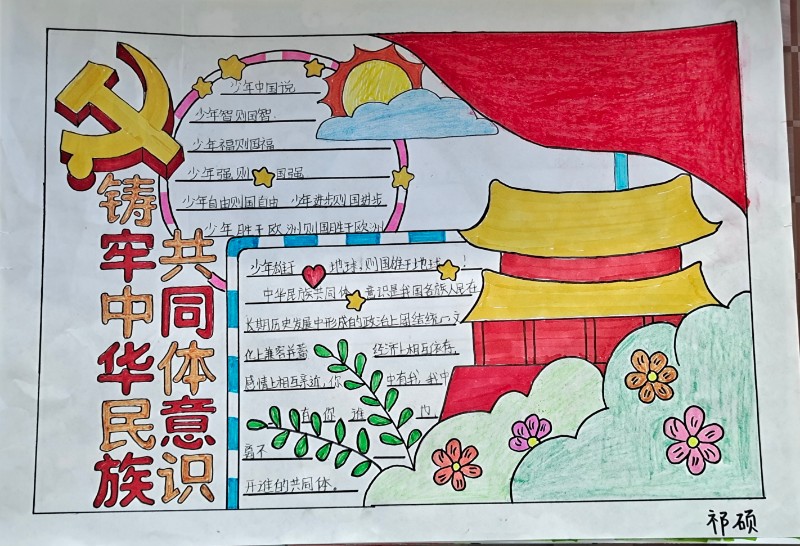 铸牢中华民族
共同体意识
少年中国说
少年智则国智
少年福则国福
少年强则国强
少年自由则国自由 少年进步则国进步
少年胜于欧洲则国胜于欧洲
少年雄于地球,则国雄于地球!
中华民族共同体意识是我国各族人民在
长期历史发展中形成的政治上团结统一文
化上兼容并蓄 经济上相互依存,
感情上相互亲近,你中有我,我中
有你 谁 也
离不
开谁的共同体。
祁硕